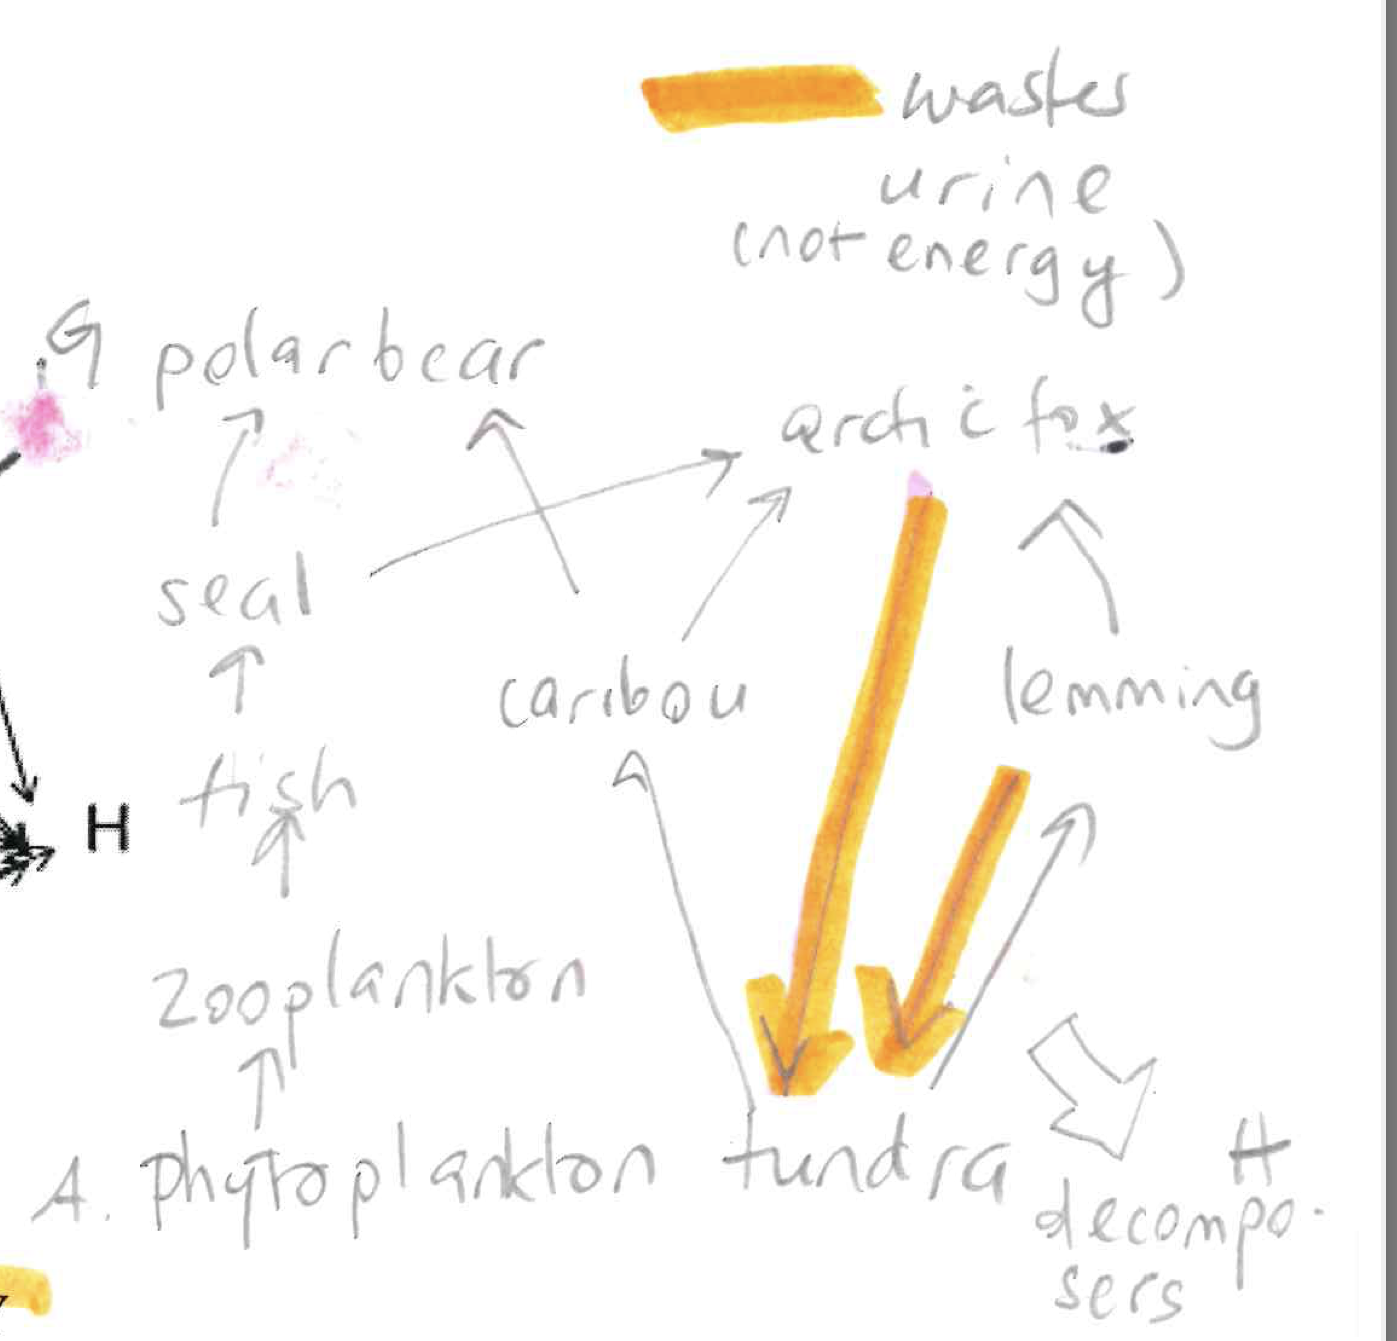 wastes
urine
(not energy)
G polar bear
arctic fox
seal
caribou
lemming
fish
H
zooplankton
A. phytoplankton
tundra
H
decompo-
sers